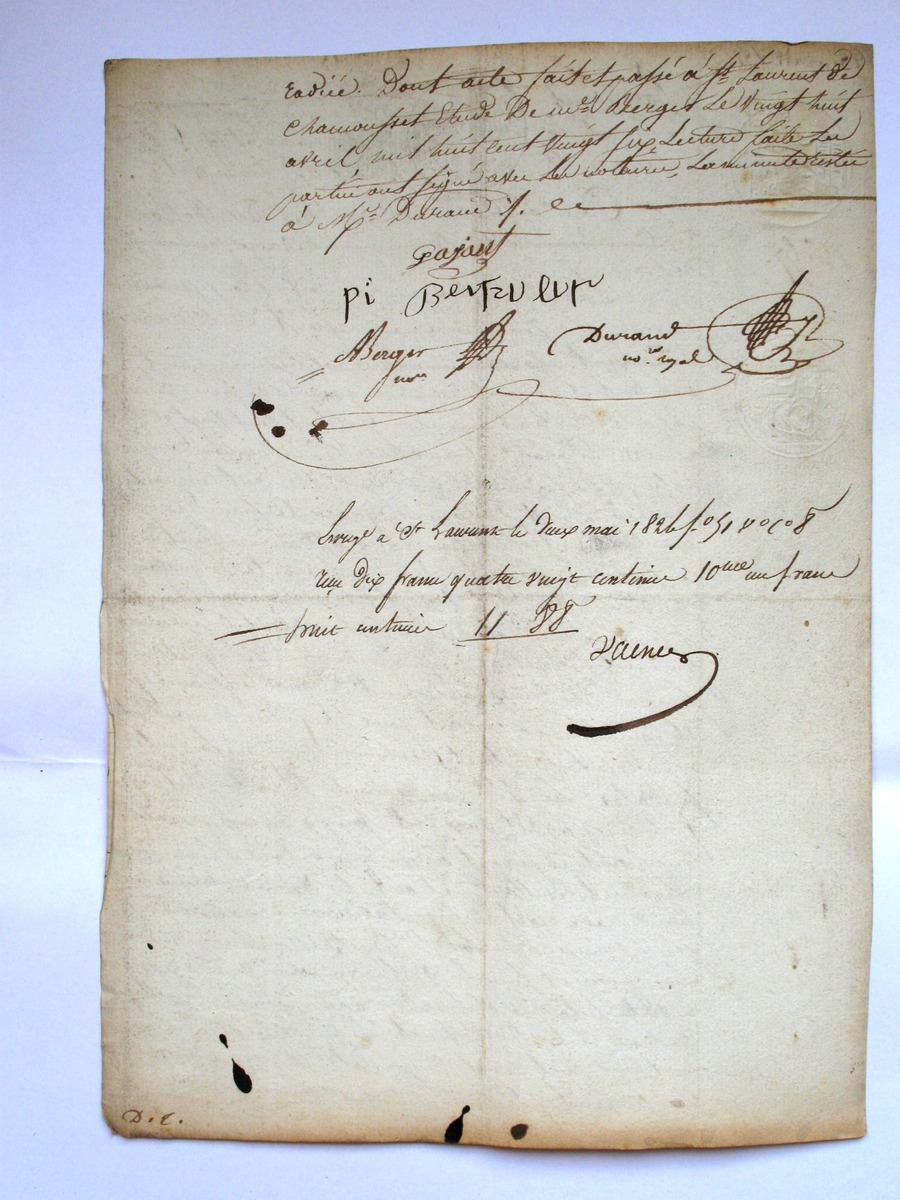 radiée. Dont acte fait et passé à St Laurent de
chamousset Etude De me Berger Le vingt huit
avril mil huit cent vingt six Lecture faite Les
parties ont signé avec Les notaires, La minute restée
à Me Durand ./.
gayant
pi
Berger
nore
Durand
no.re royal
à St Laurent le deux mai 1826 fo 51 vo co 8
reçu dix francs quatre vingt centimes 10me un franc
huit centimes 11 88
D. C.